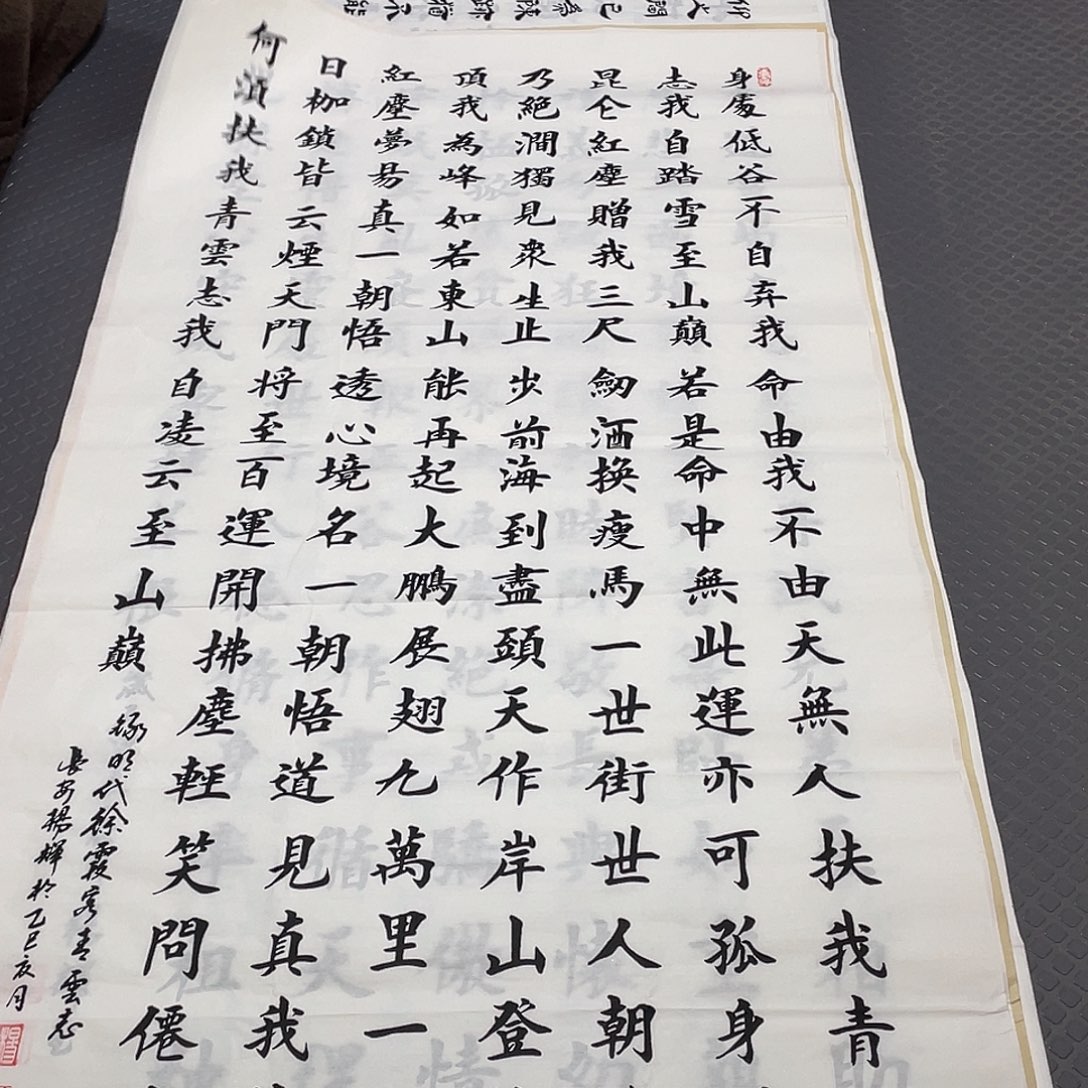 身處低谷不自弃我命由我不由天無人扶我青
志我自踏雪至山巔若是命中無此運亦可孤身
昆仑紅塵贈我三尺劒洒換瘦馬一世街世人朝
乃絕澗獨見衆生止步前海到盡頭天作岸山登
頂我為峰如若東山能再起大鵬展翅九萬里一
紅塵夢易真一朝悟透心境名一朝悟道見真我
日枷鎖皆云煙天門将至百運開拂塵輕笑問僊
何須扶我青雲志我自凌云至山巔
錄明代徐霞客青雲志
長安楊輝於乙巳月